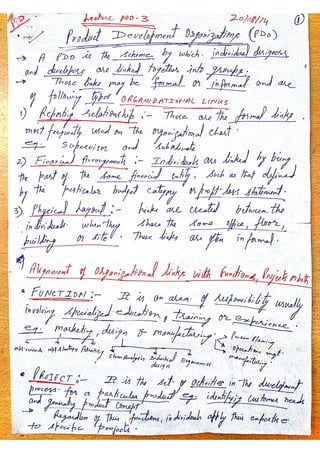 PDD Lecture no. 3 20/08/14 1
Product Development Organizations (PDO)
→ A PDO is the scheme by which individual designers
and developers are linked together into groups.
→ These links may be formal or informal and are
of following types ORGANIZATIONAL LINKS
1) Reporting relationship :- These are the formal links
most frequently used on the organizational chart.
eg. Supervisor and subordinate
2) Financial Arrangements :- Individuals are linked by being
the part of the same financial entity, such as that defined
by the particular budget category or profit-loss statement.
3) Physical Layout :- Links are created between the
individuals when they share the same office, floor,
building or site. These links are often informal.
Alignment of Organizational links with Functions, Projects
• FUNCTION :- It is an area of responsibility usually
involving specialized education, training or experience.
eg. marketing, design & manufacturing.
operations mngt.
manufacturing
Industrial Ergonomics
design
• PROJECT :- It is the set of activities in the development
process for a particular product eg. identifying customer needs
and generating product concept
→ Regardless of their functions, individuals apply their expertise
to specific projects.